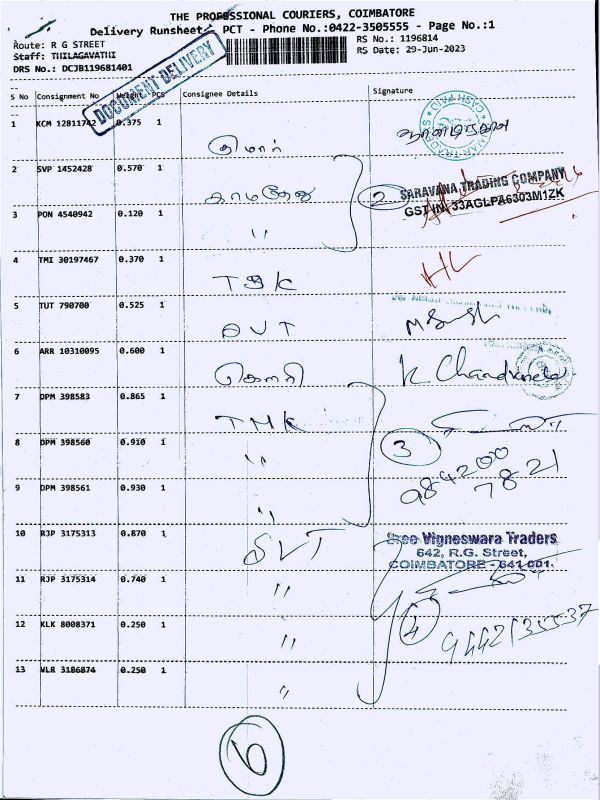 THE PROFESSIONAL COURIERS, COIMBATORE
Delivery Runsheet PCT - Phone No.:0422-3505555 - Page No.:1
Route: R G STREET
RS No.: 1196814
Staff: THILAGAVATHI
RS Date: 29-Jun-2023
DRS No.: DCJB119681401
DOCUMENT DELIVERY
S No Consignment No Weight PCS Consignee Details Signature
1 KCM 12811742 0.375 1
CASH PAID
2 SVP 1452428 0.570 1
2 SARAVANA TRADING COMPANY
GST IN: 33AGLPA6303M1ZK
3 PON 4540942 0.120 1
"
4 TMI 30197467 0.370 1
5 TUT 790700 0.525 1
6 ARR 10310095 0.600 1
K Chand
7 DPM 398583 0.865 1
TMK
8 DPM 398560 0.910 1
" 3
984200
7821
9 DPM 398561 0.930 1
"
10 RJP 3175313 0.870 1
SVT
Sree Vigneswara Traders
642, R.G. Street,
COIMBATORE - 641 001.
11 RJP 3175314 0.740 1
"
12 KLK 8008371 0.250 1
" 4
9442135537
13 VLR 3186874 0.250 1
"
6